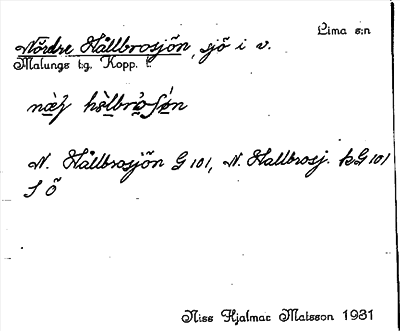 Lima s:n
Nördre Hållbrosjön, sjö i v.
Malungs t:g. Kopp. l.
N. Hållbrosjön G 101, N. Hallbrosj. kG 101
S Ö
Niss Hjalmar Matsson 1931